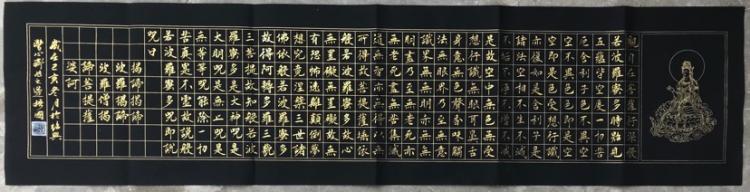 觀自在菩薩行深般
若波羅蜜多時照見
五蘊皆空度一切苦
厄舍利子色不異空
空不異色色即是空
空即是色受想行識
亦復如是舍利子是
諸法空相不生不滅
不垢不淨不增不減
是故空中無色無受
想行識無眼耳鼻舌
身意無色聲香味觸
法無眼界乃至無意
識界無無明亦無無
明盡乃至無老死亦
無老死盡無苦集滅
道無智亦無得以無
所得故菩提薩埵依
般若波羅蜜多故心
無罣礙無罣礙故無
有恐怖遠離顛倒夢
想究竟涅槃三世諸
佛依般若波羅蜜多
故得阿耨多羅三藐
三菩提故知般若波
羅蜜多是大神呪是
大明呪是無上呪是
無等等呪能除一切
苦真實不虛故說般
若波羅蜜多呪即說
呪曰
揭諦揭諦
波羅揭諦
波羅僧揭
諦菩提薩
婆訶
歲在亥冬月於紹興